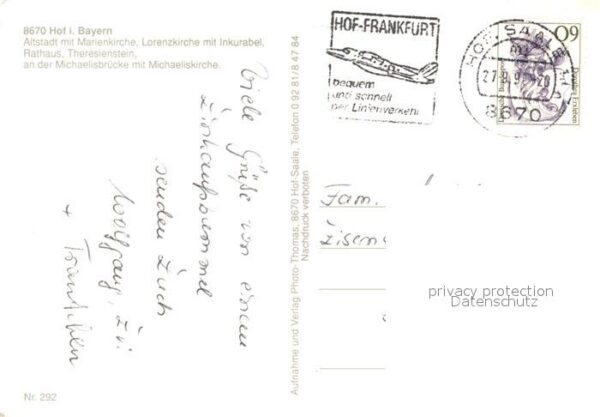 8670 Hof i. Bayern
Altstadt mit Marienkirche, Lorenzkirche mit Inkurabel,
Rathaus, Theresienstein,
an der Michaelisbrücke mit Michaeliskirche.
Viele Grüße von einem
senden Euch
Wolfgang,
+
Nr. 292
Aufnahme und Verlag Photo-Thomas, 8670 Hof-Saale, Telefon 0 92 81/8 47 84
Nachdruck verboten
HOF-FRANKFURT
bequem
und schnell
per Linienverkehr
HOF, SAALE
8670
60
Dorothea Erxleben
Deutsche Bundespost
Fam.
privacy protection
Datenschutz